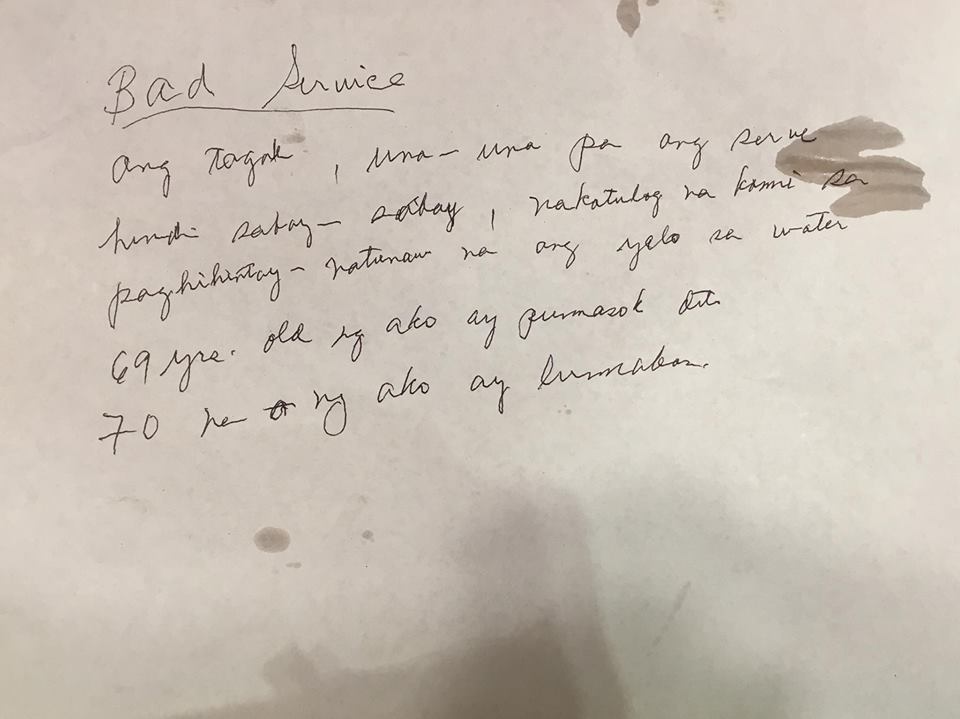 Bad Service
Ang tagal, una-una pa ang serve
hindi sabay-sabay, nakatulog na kami sa
paghihintay - natunaw na ang yelo sa water
69 yrs. old ng ako ay pumasok dito
70 na ng ako ay lumabas.